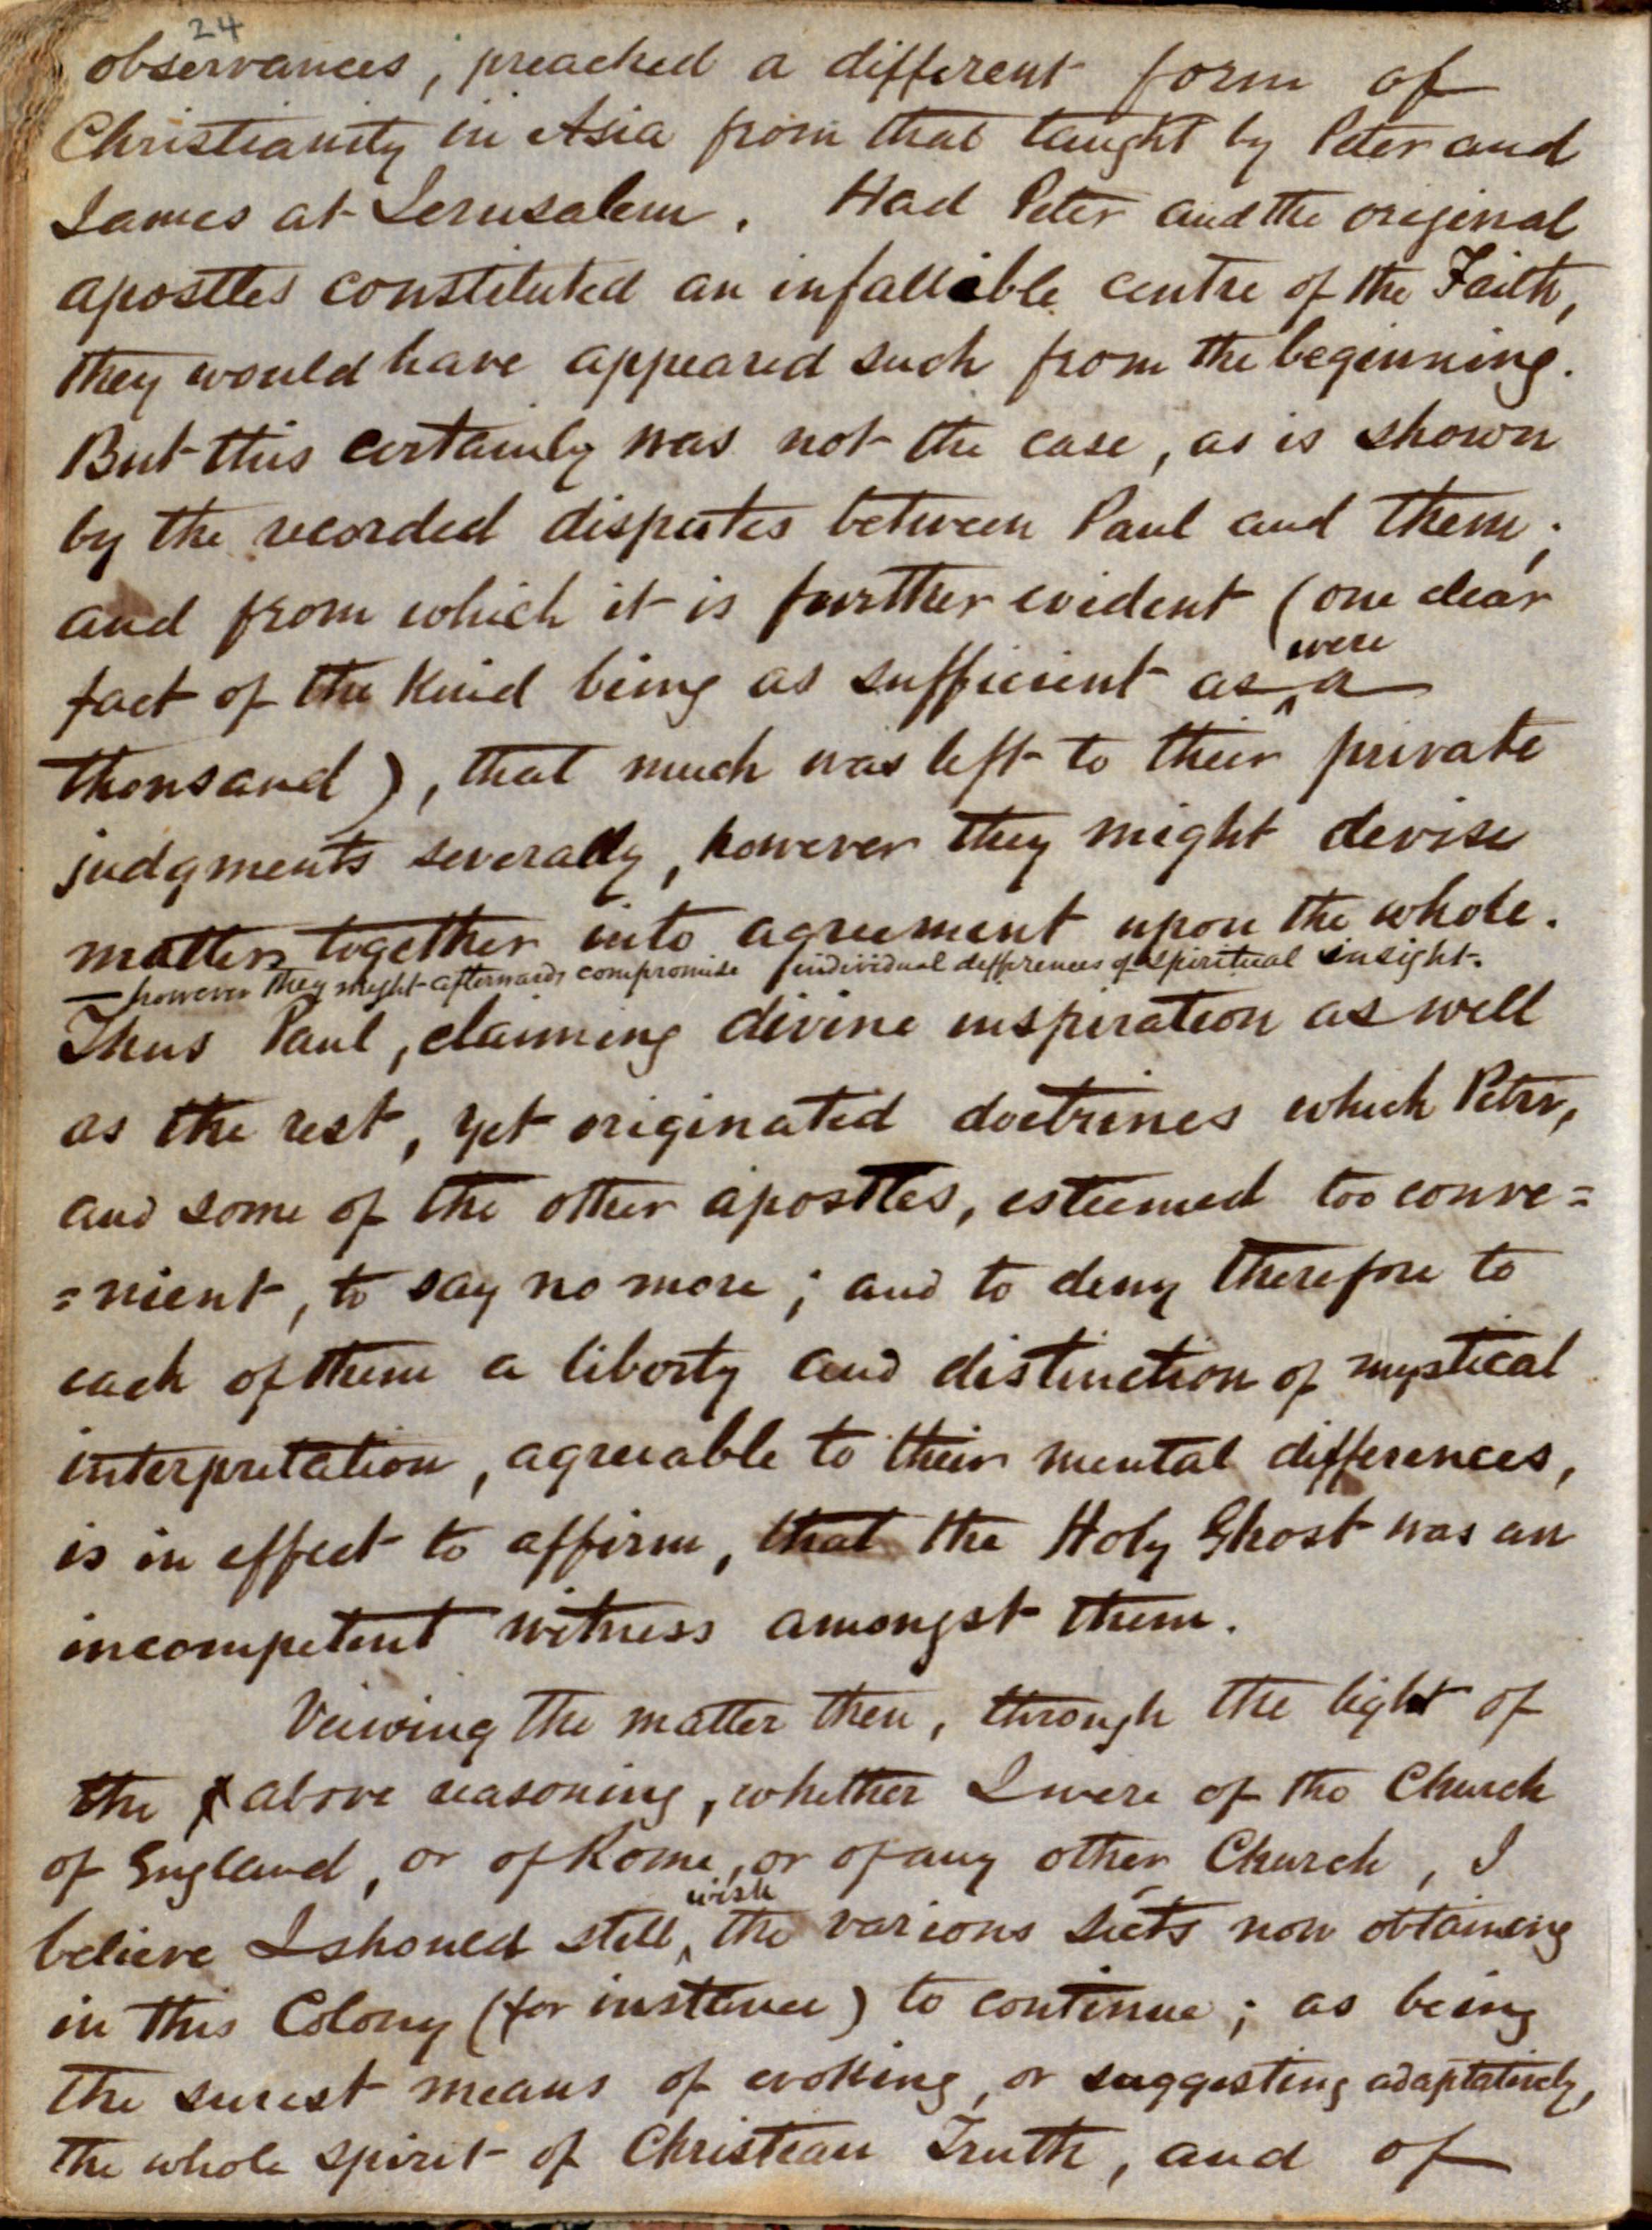 24
observances, preached a different form of
Christianity in Asia from that taught by Peter and
James at Jerusalem. Had Peter and the original
apostles constituted an infallible centre of the Faith,
they would have appeared such from the beginning.
But this certainly was not the case, as is shown
by the recorded disputes between Paul and them;
and from which it is further evident (one clear
were
fact of the kind being as sufficient as ^ a
thousand), that much was left to their private
judgments severally, however they might devise
matters together into agreement upon the whole.
— however they might afterwards compromise individual differences of spiritual insight.
Thus Paul, claiming divine inspiration as well
as the rest, yet originated doctrines which Peter,
and some of the other apostles, esteemed too conve=
=nient, to say no more; and to deny therefore to
each of them a liberty and distinction of mystical
interpretation, agreeable to their mental differences,
is in effect to affirm, that the Holy Ghost was an
incompetent witness amongst them.
Veiwing the matter then, through the light of
the above reasoning, whether I were of the Church
of England, or of Rome, or of any other Church, I
wish
believe I should still ^ the various sects now obtaining
in this Colony (for instance) to continue; as being
the surest means of evoking, or suggesting adaptatively,
the whole spirit of Christian Truth, and of